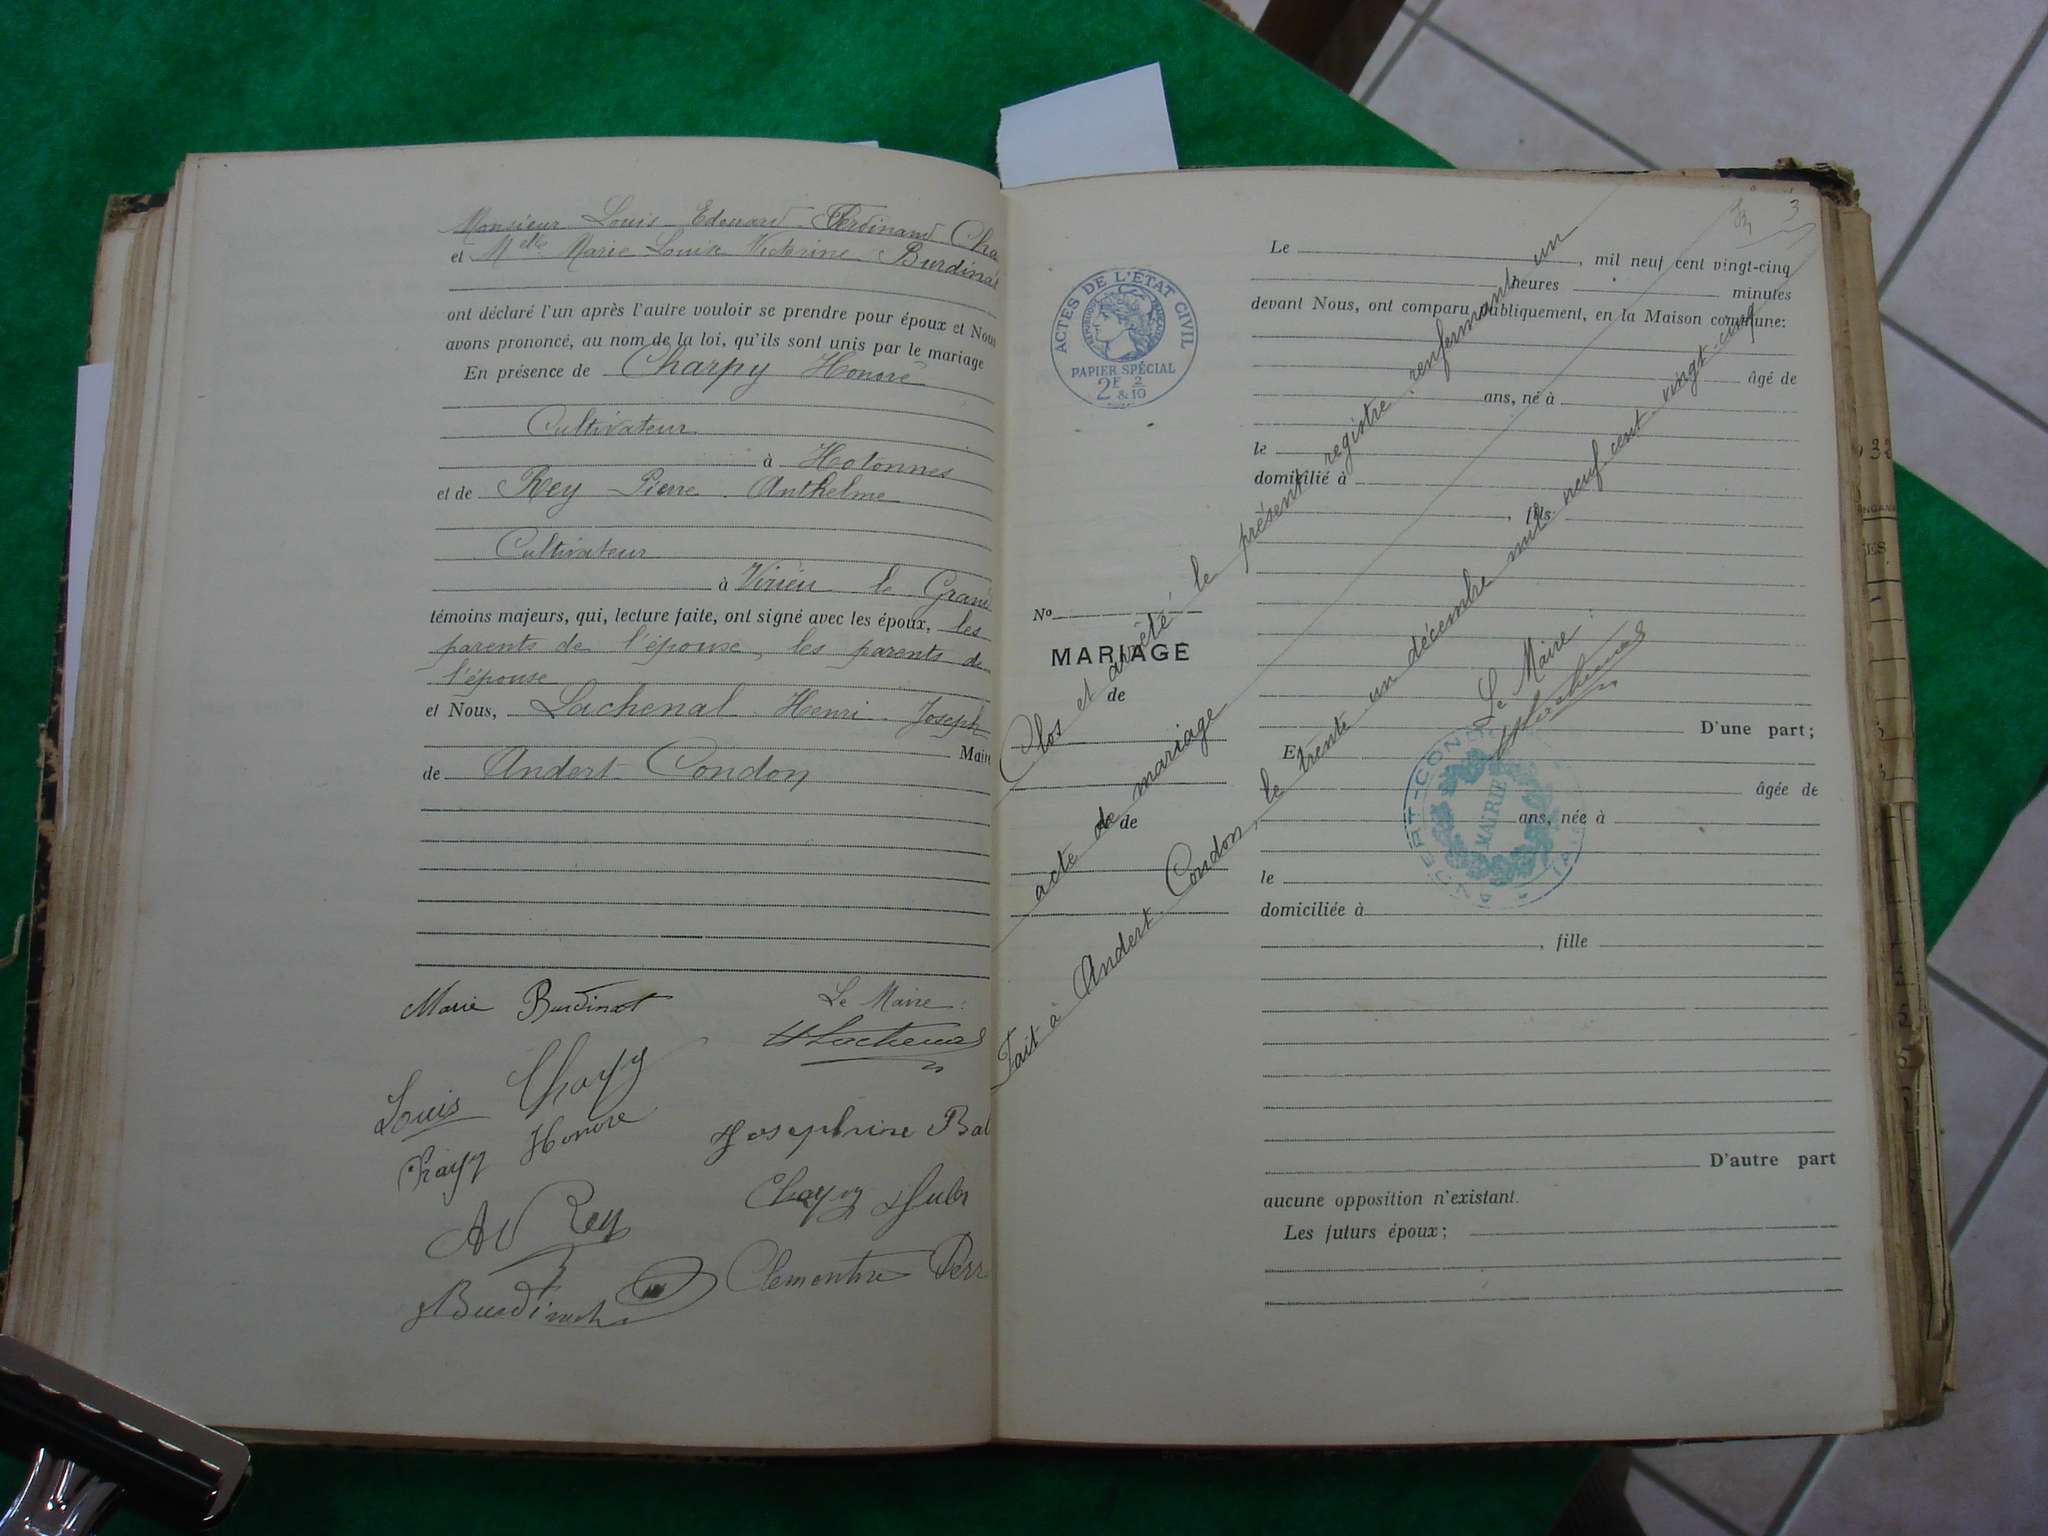 Monsieur Louis Edouard Ferdinand Cha
et Melle Marie Louise Victorine Burdinat
ont déclaré l'un après l'autre vouloir se prendre pour époux et Nous
avons prononcé, au nom de la loi, qu'ils sont unis par le mariage
En présence de Charpy Honoré
Cultivateur
à Hotonnes
et de Rey Pierre Anthelme
Cultivateur
à Virieu le Grand
témoins majeurs, qui, lecture faite, ont signé avec les époux, les
parents de l'épouse, les parents de
l'épouse
et Nous, Lachenal Henri Joseph
Maire
de Andert-Condon
Marie Burdinat
Le Maire :
HLachenal
Louis Charpy
Charpy Honoré
Josephine Bal
A Rey
Charpy
Burdinat
Clementine Perr
3
ACTES DE L'ÉTAT CIVIL
PAPIER SPÉCIAL
2F 2
& 10
No
MARIAGE
de
et de
Le , mil neuf cent vingt-cinq
heures minutes
devant Nous, ont comparu publiquement, en la Maison commune:
âgé de
ans, né à
le
domicilié à
, fils
D'une part;
Et
âgée de
ans, née à
le
domiciliée à
, fille
D'autre part
aucune opposition n'existant.
Les futurs époux;
Clos et arrêté le présent registre renfermant un
acte de mariage
Fait à Andert-Condon, le trente-un décembre mil neuf cent vingt-cinq
Le Maire :
HLachenal
MAIRIE